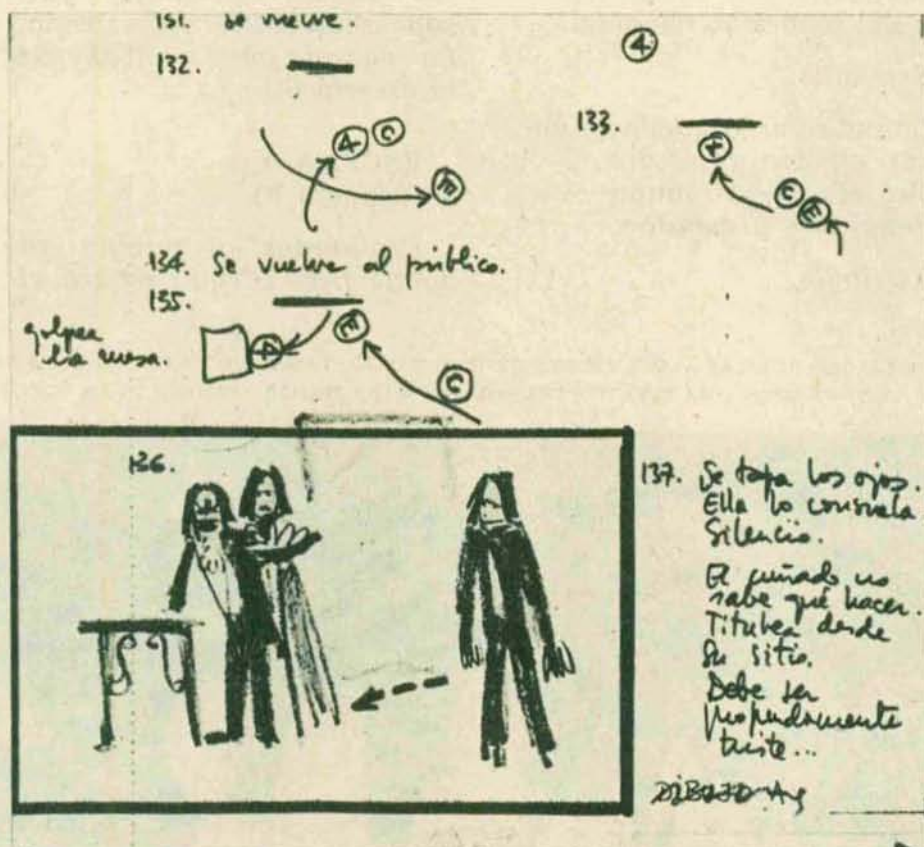 131. Se vuelve.
132.
4
133.
A C
E
C E
134. Se vuelve al público.
135.
golpea
la mesa.
E
C
136.
137. Se tapa los ojos.
Ella lo consuela
Silencio.
El cuñado no
sabe qué hacer.
Titubea desde
su sitio.
Debe ser
profundamente
triste...
DIBUJO